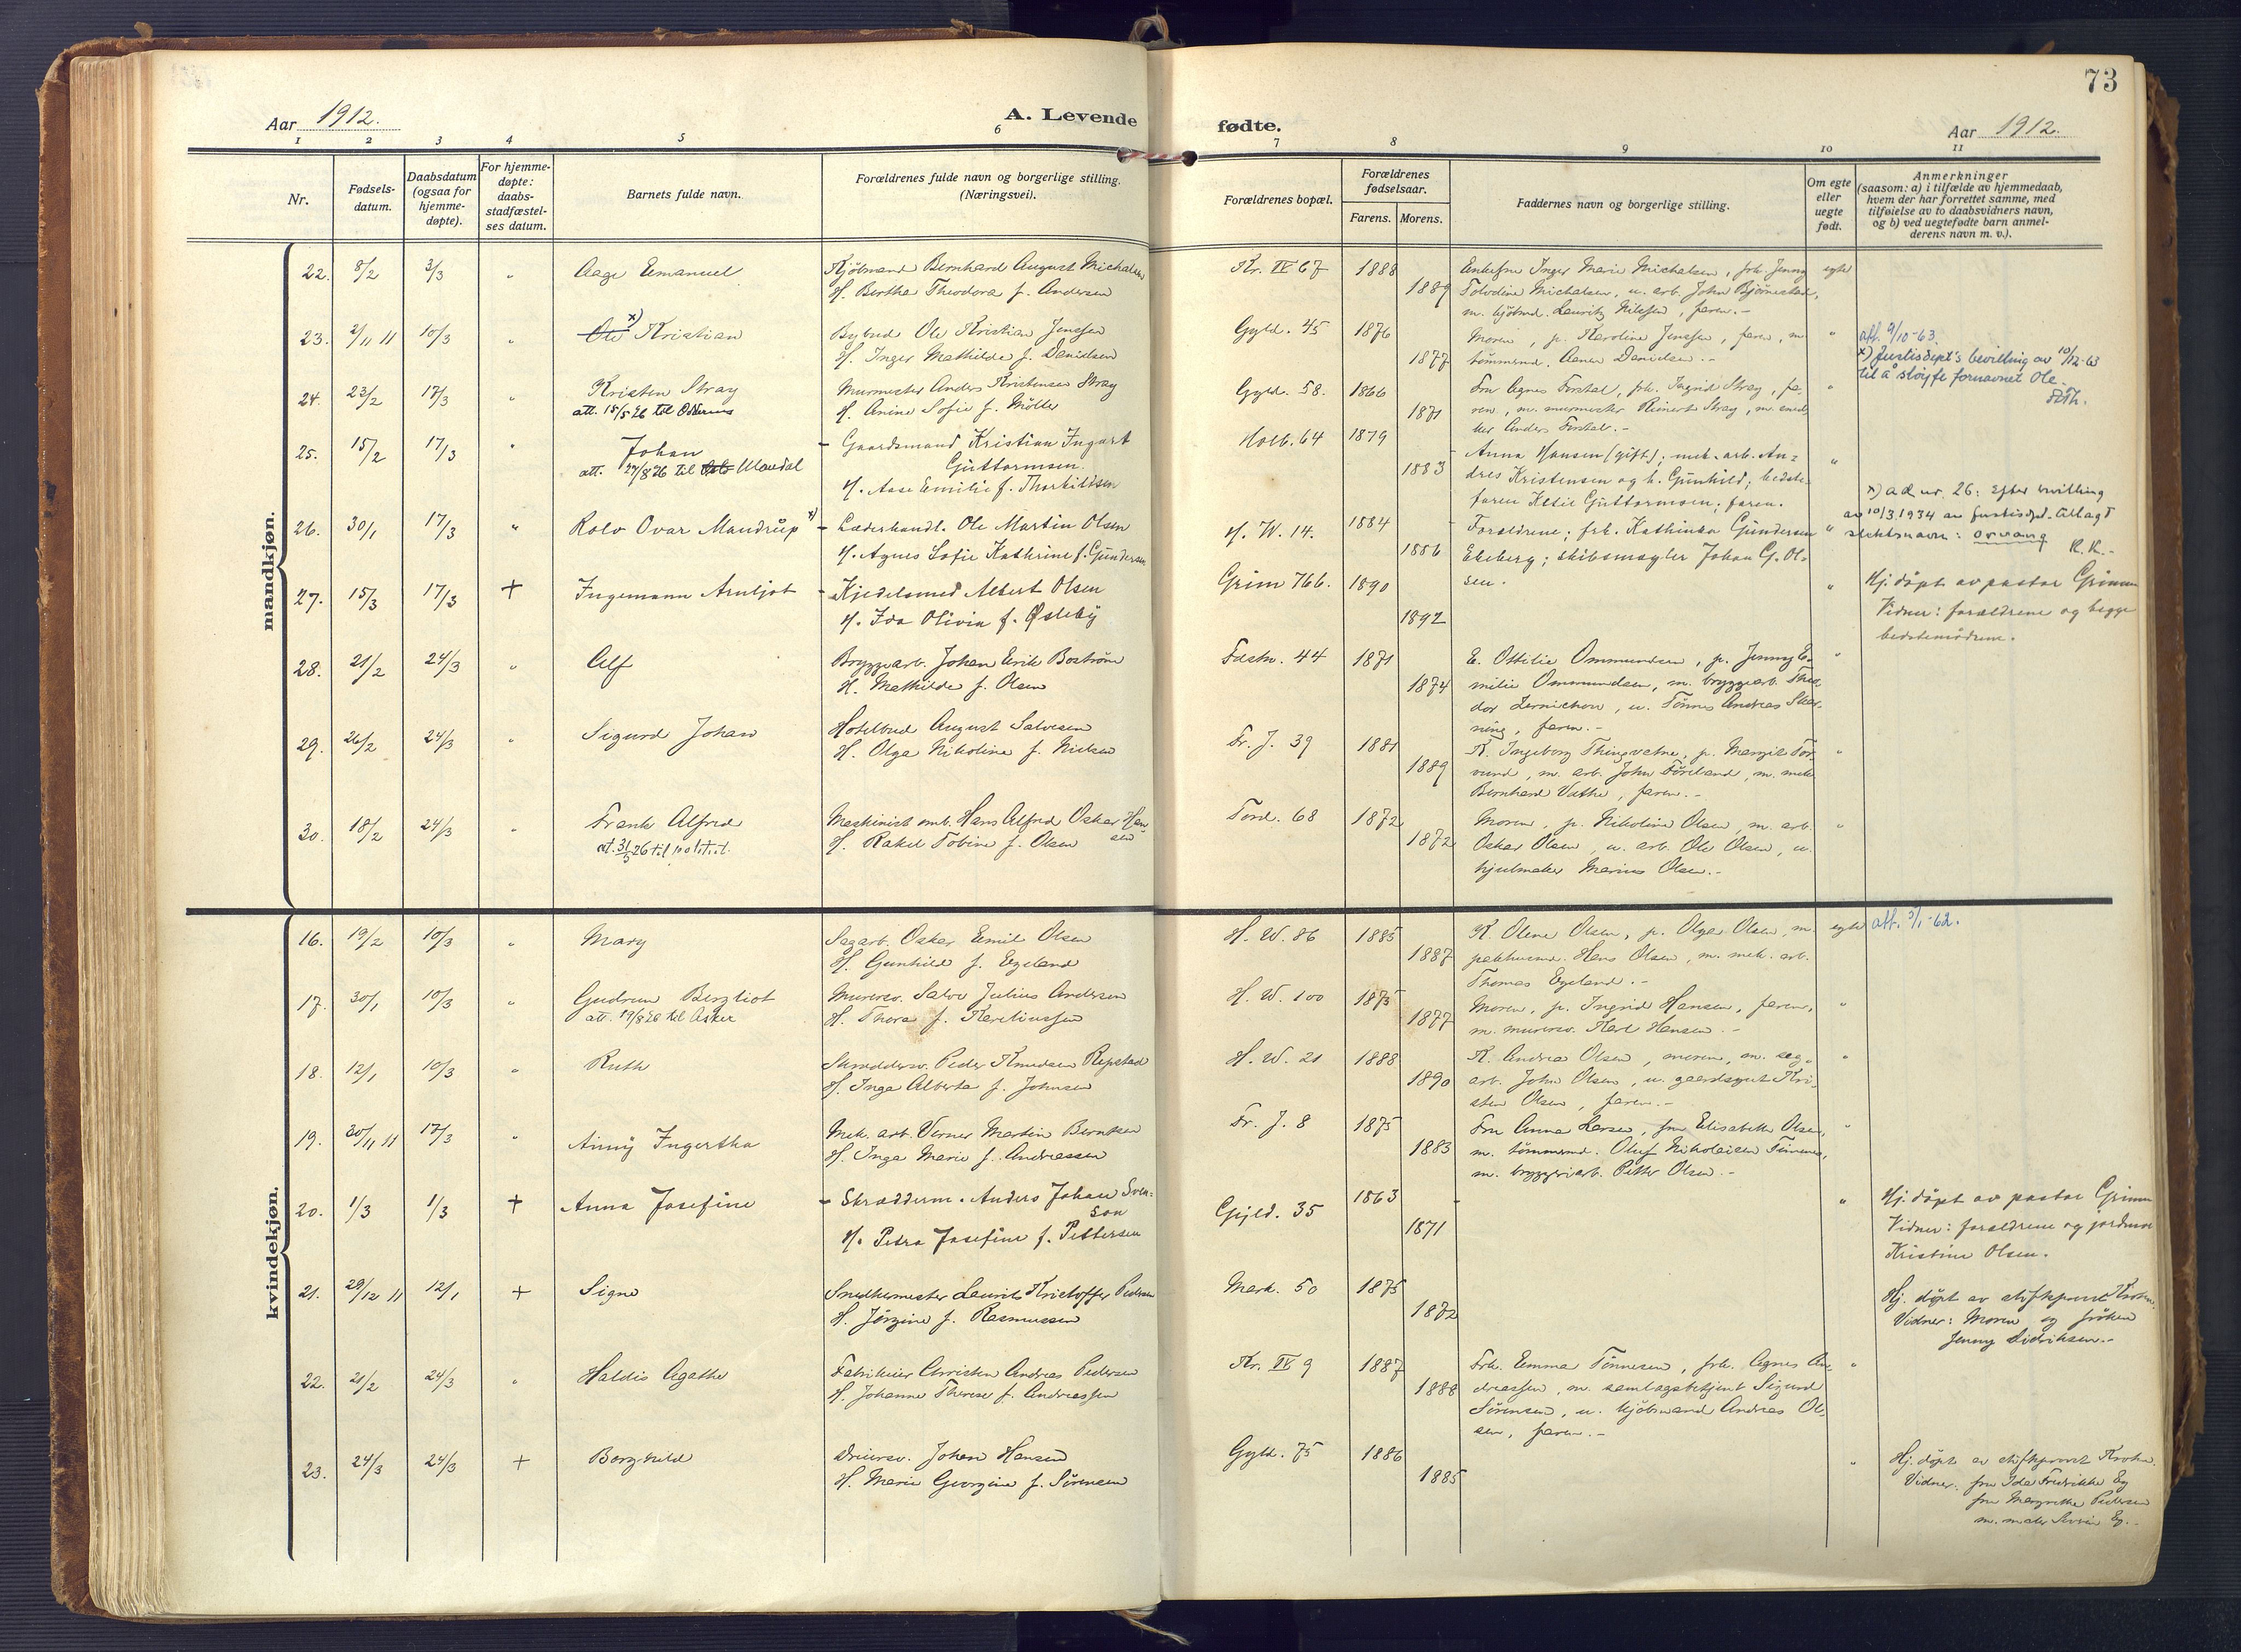 73
Aar 1912.
A. Levende
fødte.
Aar 1912.
1 2 3 4 5 6 7 8 9 10 11
Nr.
Fødsels-
datum.
Daabsdatum
(ogsaa for
hjemme-
døpte).
For hjemme-
døpte:
daabs-
stadfæstel-
ses datum.
Barnets fulde navn.
Forældrenes fulde navn og borgerlige stilling.
(Næringsvei).
Forældrenes bopæl.
Forældrenes
fødselsaar.
Farens. Morens.
Faddernes navn og borgerlige stilling.
Om egte
eller
uegte
født.
Anmerkninger
(saasom: a) i tilfælde av hjemmedaab,
hvem der har forrettet samme, med
tilføielse av to daabsvidners navn,
og b) ved uegtefødte barn anmel-
derens navn m. v.).
mandkjøn.
22. 8/2 3/3 " Aage Emanuel Kjøbmand Bernhard August Michalsen Kr. IV 67 1888 Enkefru Inger Marie Michalsen, frk. Jenny egte
H. Bertha Theodora f. Andersen 1889 Tolvdine Michalsen, u. arb. John Bjørnestad,
m. kjøbmd. Lauritz Nilssen, faren.-
23. 2/11 11 10/3 " Ole x) Kristian Bybud Ole Kristian Jenssen Gyld. 45 1876 Moren, p. Karoline Jenssen, faren, m. " att. 9/10-63.
H. Inger Mathilde f. Danielsen 1877 tømmermd. Aanen Danielsen.- x) Justisdept's bevilling av 10/12-63
til å sløyfe fornavnet Ole.
24. 23/2 17/3 " Kristen Stray Murmester Anders Kristensen Stray Gyld. 58. 1866 Fru Agnes Forstal, frk. Ingrid Stray, fa- "
att. 15/5 26 til Oddernes H. Anine Sofie f. Møller 1871 ren, m. murmester Reinert Stray, m. sned-
ker Anders Forstal.-
25. 15/2 17/3 " Johan - Gaardsmand Kristian Ingvart Holb. 64 1879 Anna Hansen (gift); mek. arb. An- "
att. 27/8 26 til Mandal Guttormsen. 1883 dres Kristensen og h. Gunhild; bedste-
H. Aase Emilie f. Thorkildsen faren Ketil Guttormsen; faren.
26. 30/1 17/3 " Rolv Ovar Mandrup x) - Læderhandl. Ole Martin Olsen H. W. 14. 1884 Forældrene; frk. Kathinka Gundersen " x) ad nr. 26: Efter bevilling
H. Agnes Sofie Kathrine f. Gundersen 1886 Ekeberg; skibsmægler Johan G. Ol- av 10/3.1934 av justisdpt. antagt
sen. slektsnavn: Orvang R. K.-
27. 15/3 17/3 + Ingemann Arnljot - Kjedelsmed Albert Olsen Grim 766. 1890 " Hj. døpt av pastor Grimm
H. Ida Olivia f. Østeby 1892 Vidner: forældrene og begge
bedstemødrene.
28. 21/2 24/3 " Alf Bryggearb. Johan Erik Boström Festn. 44 1871 E. Ottilie Ommundsen, p. Jenny E- "
H. Mathilde f. Olsen 1874 milie Ommundsen, m. bryggearb. Theo-
dor Zernichow, u. Tønnes Andreas Skar-
ning, faren.-
29. 26/2 24/3 " Sigurd Johan Hotelbud August Salvesen Fr. J. 39 1881 K. Ingeborg Thingvatne, p. Margit Tor- "
H. Olga Nikoline f. Nielsen 1889 vund, m. arb. John Føreland, m. mek.
Bernhard Vatne, faren.-
30. 18/2 24/3 " Frank Alfred Maskinist omb. Hans Alfred Oskar Han- Tord. 68 1872 Moren, p. Nikoline Olsen, m. arb. "
at. 31/5 26 til politiet. H. Rakel Tobine f. Olsen sen 1872 Oskar Olsen, u. arb. Ole Olsen, u.
hjulmaker Marius Olsen.-
kvindekjøn.
16. 19/2 10/3 " Mary Sagarb. Oskar Emil Olsen H. W. 86 1885 K. Olene Olsen, p. Olga Olsen, m. egte att. 3/1-62.
H. Gunhild f. Egeland 1887 pakhusmd. Hans Olsen, m. mek. arb.
Thomas Egeland.-
17. 30/1 10/3 " Gudrun Bergliot Murersv. Salve Julius Andersen H. W. 100 1875 Moren, p. Ingrid Hansen, faren, "
att. 19/8 26 til Asker H. Thora f. Kareliussen 1877 m. murersv. Karl Hansen.-
18. 12/1 10/3 " Ruth Skræddersv. Peder Knudsen Repstad H. W. 21 1888 K. Andrea Olsen, moren, m. sag- "
H. Inga Alberta f. Johnsen 1890 arb. John Olsen, u. gaardsgut Kri-
sten Olsen, faren.-
19. 30/11 11 17/3 " Anny Ingertha Mek. arb. Verner Martin Berntsen Fr. J. 8 1875 Fru Anna Larsen, fru Elisabeth Olsen, "
H. Inga Marie f. Andreassen 1883 m. tømmermd. Oluf Nikolaisen Timenes,
m. bryggeriarb. Petter Olsen.-
20. 1/3 1/3 + Anna Josefine - Skrædderm. Anders Johan Sven- Gyld. 35 1863 " Hj. døpt av pastor Grimm
son 1871 Vidner: forældrene og jordmor
H. Petra Josefine f. Pettersen Kristine Olsen.
21. 29/12 11 12/1 + Signe Snedkermester Laurits Kristoffer Pedersen Mark. 50 1875 Hj. døpt av stiftsprovst Krohn.
H. Jørgine f. Rasmussen 1872 Vidner: Moren og frøken
Jenny Didriksen.-
22. 21/2 24/3 " Haldis Agathe Fabrikeier Christen Andreas Pedersen Kr. IV 9 1887 Frk. Emma Tønnesen, frk. Agnes An- "
H. Johanne Therese f. Andreassen 1888 dreassen, m. samlagsbetjent Sigurd
Sørensen, u. kjøbmand Andreas Ol-
sen, faren.-
23. 24/3 24/3 + Borghild Dreiersv. Johan Hansen Gyld. 75 1886 " Hj. døpt av stiftsprovst Krohn.
H. Marie Georgine f. Sørensen 1885 Vidner: fru Ida Fredrikke Eg
fru Margrethe Pedersen
m. maler Eg.-